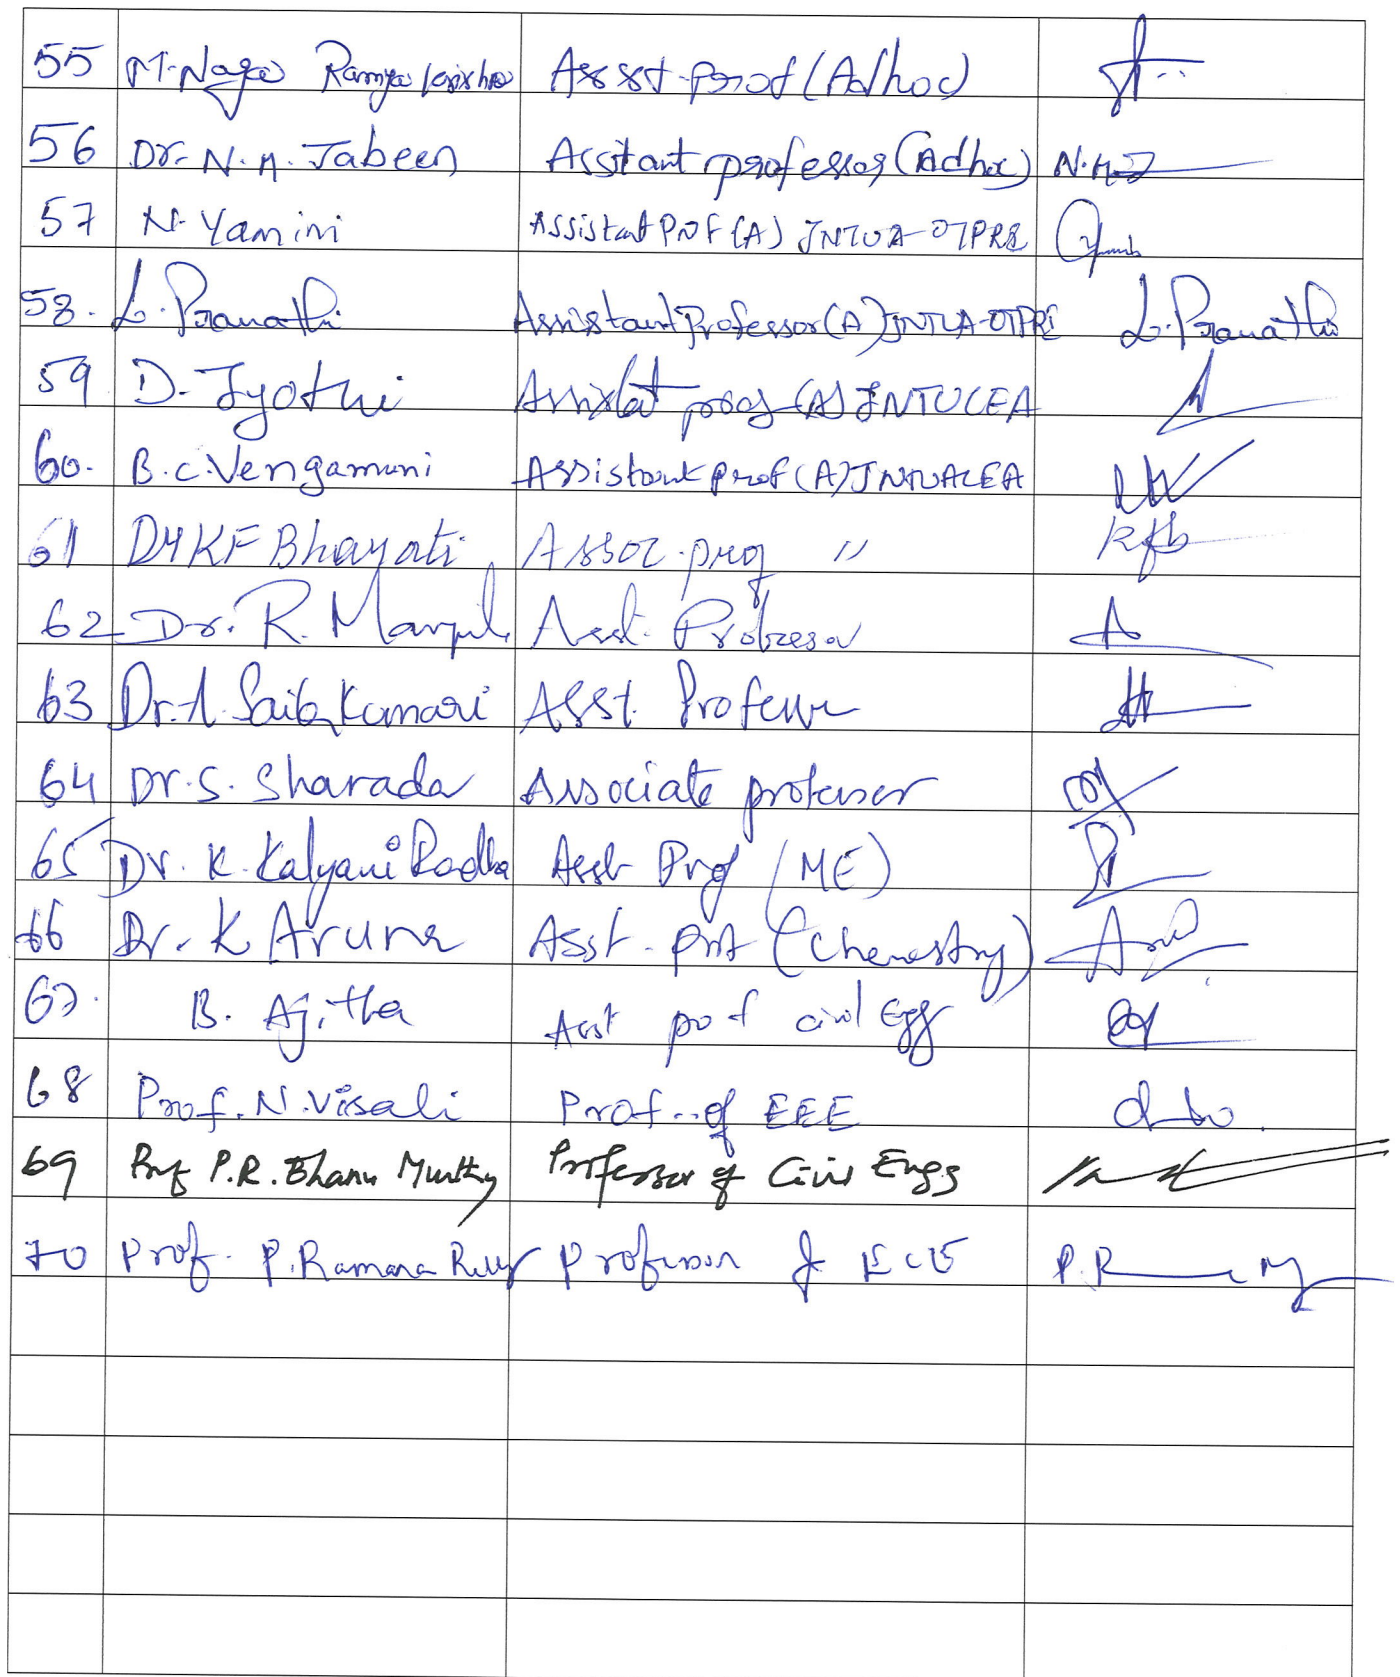 55 M. Naga Ramya Krishna Asst. prof (Adhoc)
56 Dr. N. A. Jabeen Asstant professor (Adhoc) N.A.J
57 N. Yamini Assistant Prof (A) JNTUA-OTPRI
58. L. Pranathi Assistant Professor (A) JNTUA-OTPRI L. Pranathi
59 D. Jyothi Assistat prof (A) JNTUCEA
60. B.C. Vengamuni Assistant prof (A) JNTUACEA
61 Bhavati Assoc. prof " kfb
62 Dr. R. Asst. Professor
63 Dr. A. Kumari Asst. Professor
64 Dr. S. Sharada Associate professor
65 Dr. K. Kalyani Radha Asst Prof (ME)
66 Dr. K Aruna Asst. prof (Chemestry)
67. B. Ajitha Asst prof civil Egg
68 Prof. N. Visali Prof. of EEE
69 Prof P.R. Bhanu Murthy Professor of Civil Engg
70 Prof. P. Ramana Reddy Professor of ECE P.R